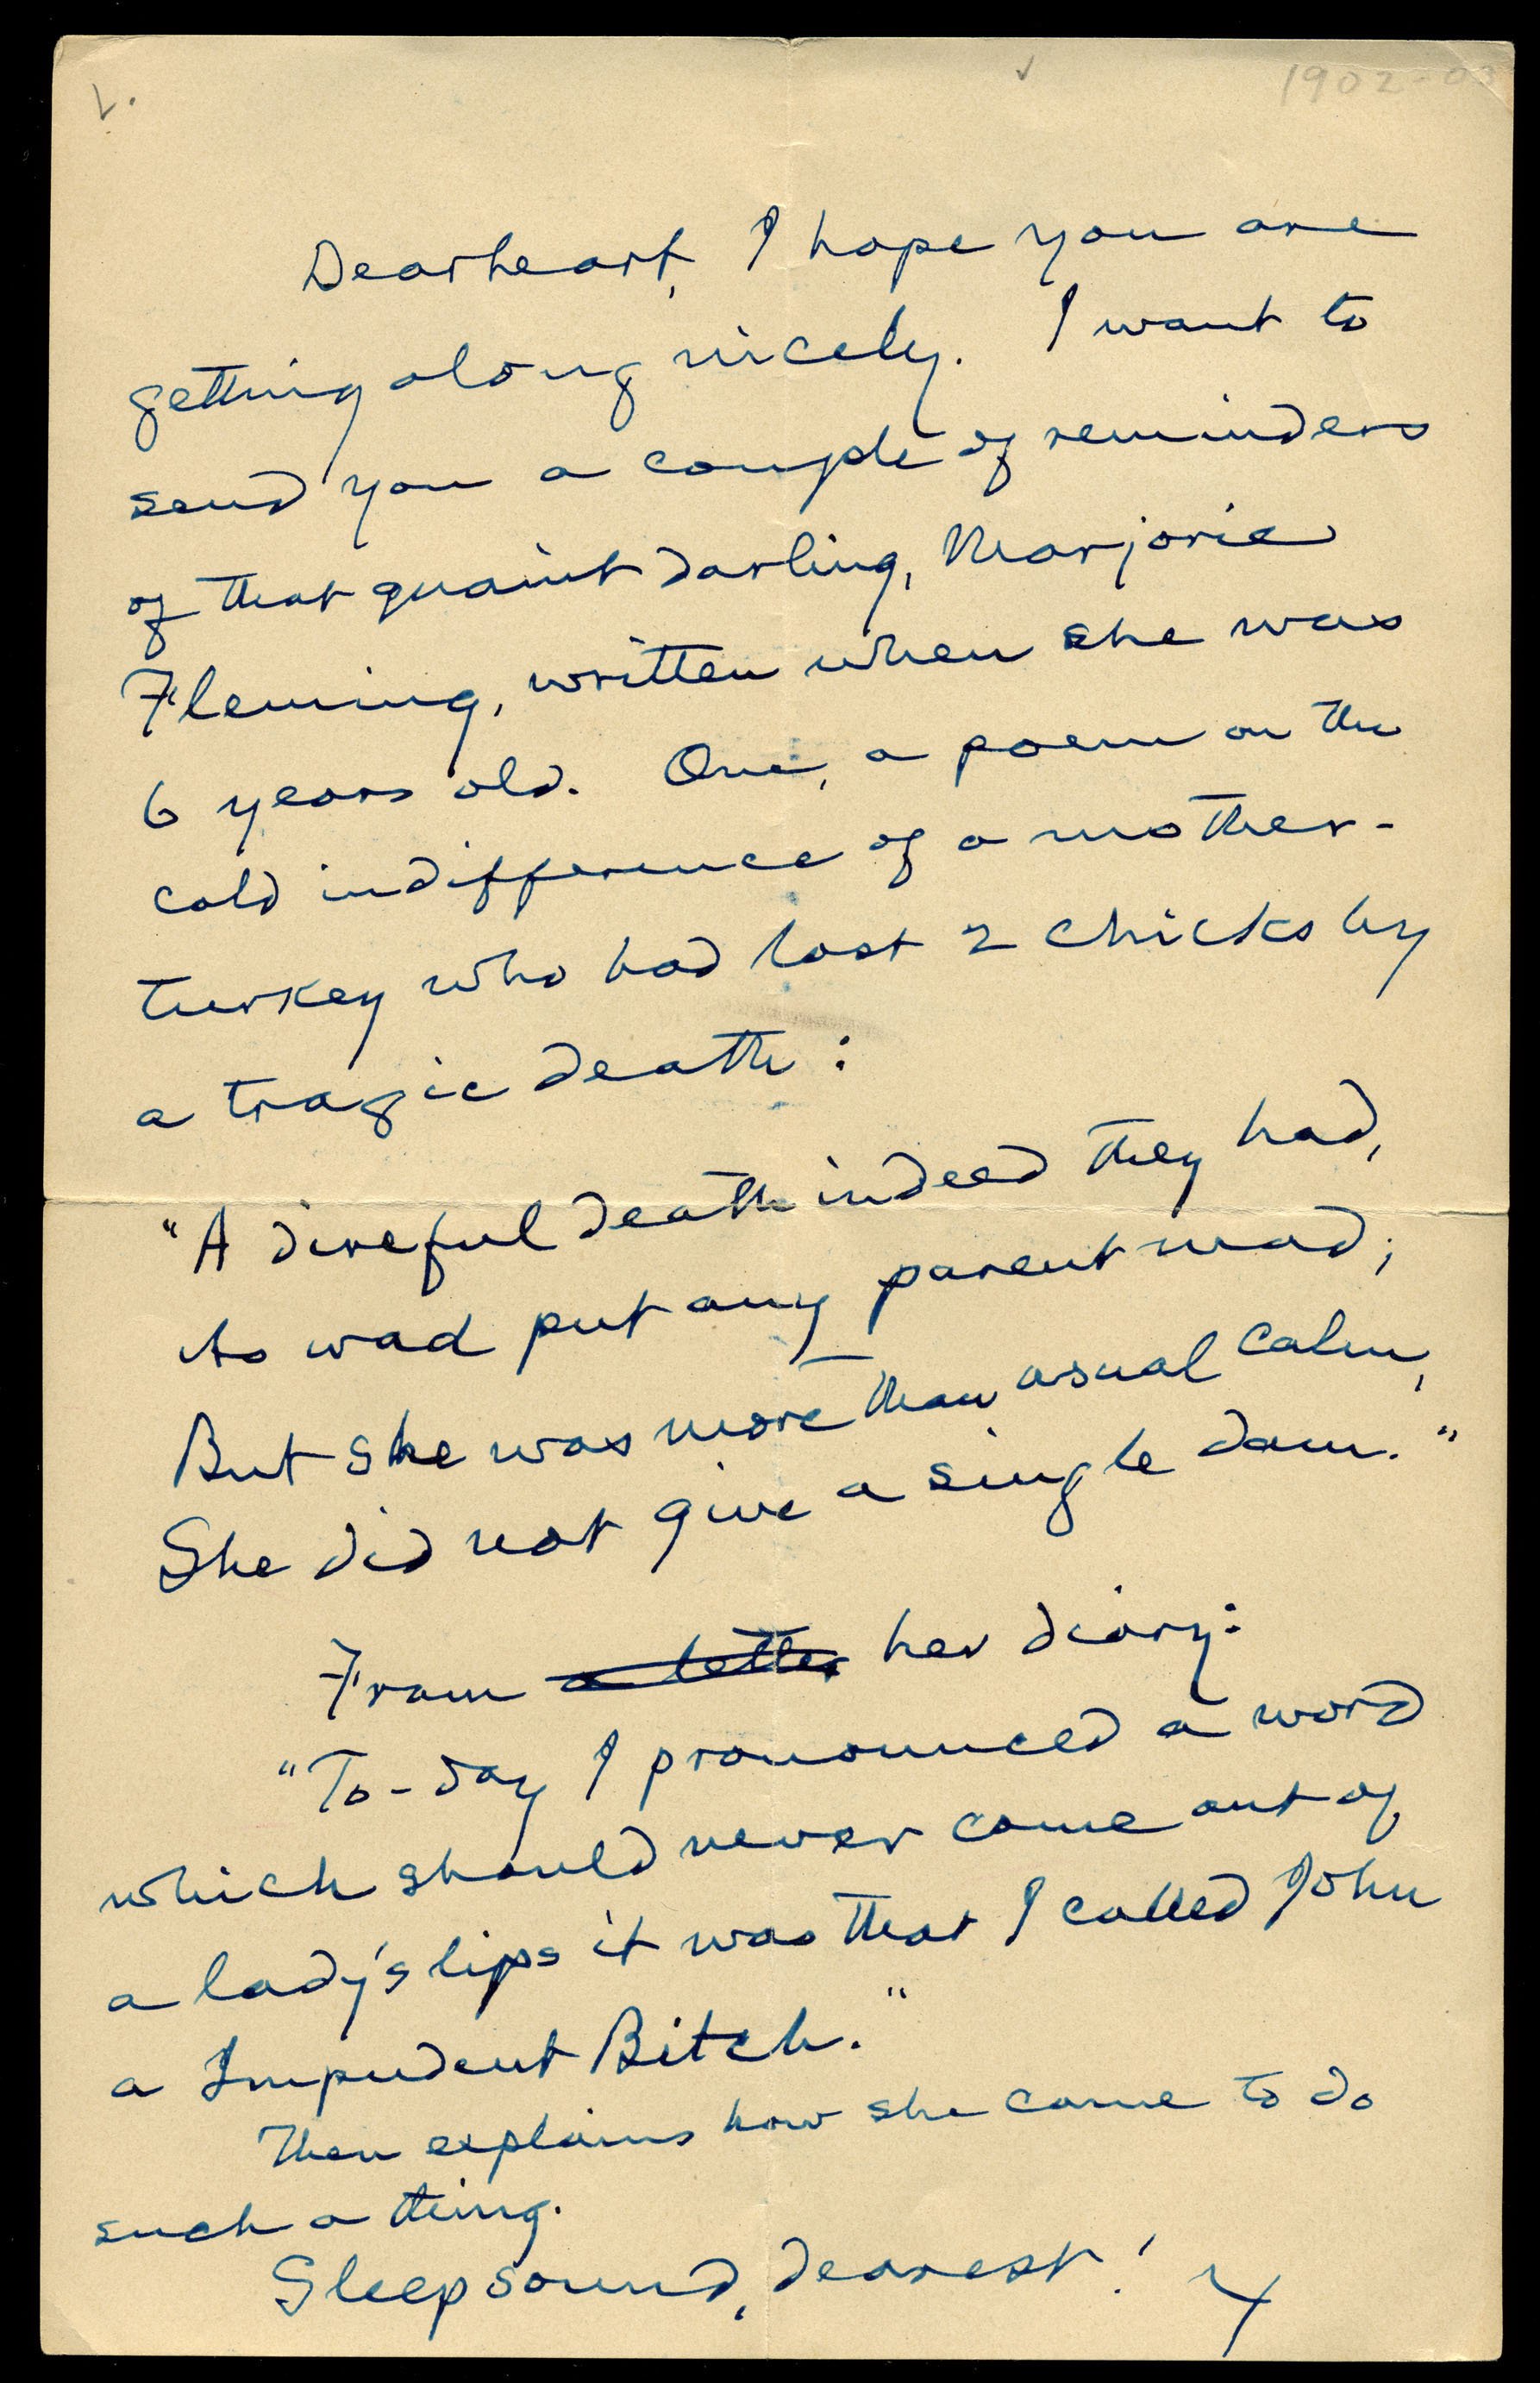 L.
✓
1902-03
Dearheart, I hope you are
getting along nicely. I want to
send you a couple of reminders
of that quaint darling, Marjorie
Fleming, written when she was
6 years old. One, a poem on the
cold indifference of a mother-
turkey who had lost 2 chicks by
a tragic death:
"A direful death indeed they had,
As wad put any parent mad;
But she was more than usual calm,
She did not give a single dam."
From a letter her diary:
"To-day I pronounced a word
which should never come out of
a lady's lips it was that I called John
a Impudent Bitch."
Then explains how she came to do
such a thing.
Sleep sound, dearest! Y